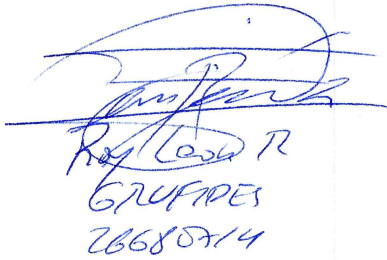 Roy León R
GRUFIDES
26680714